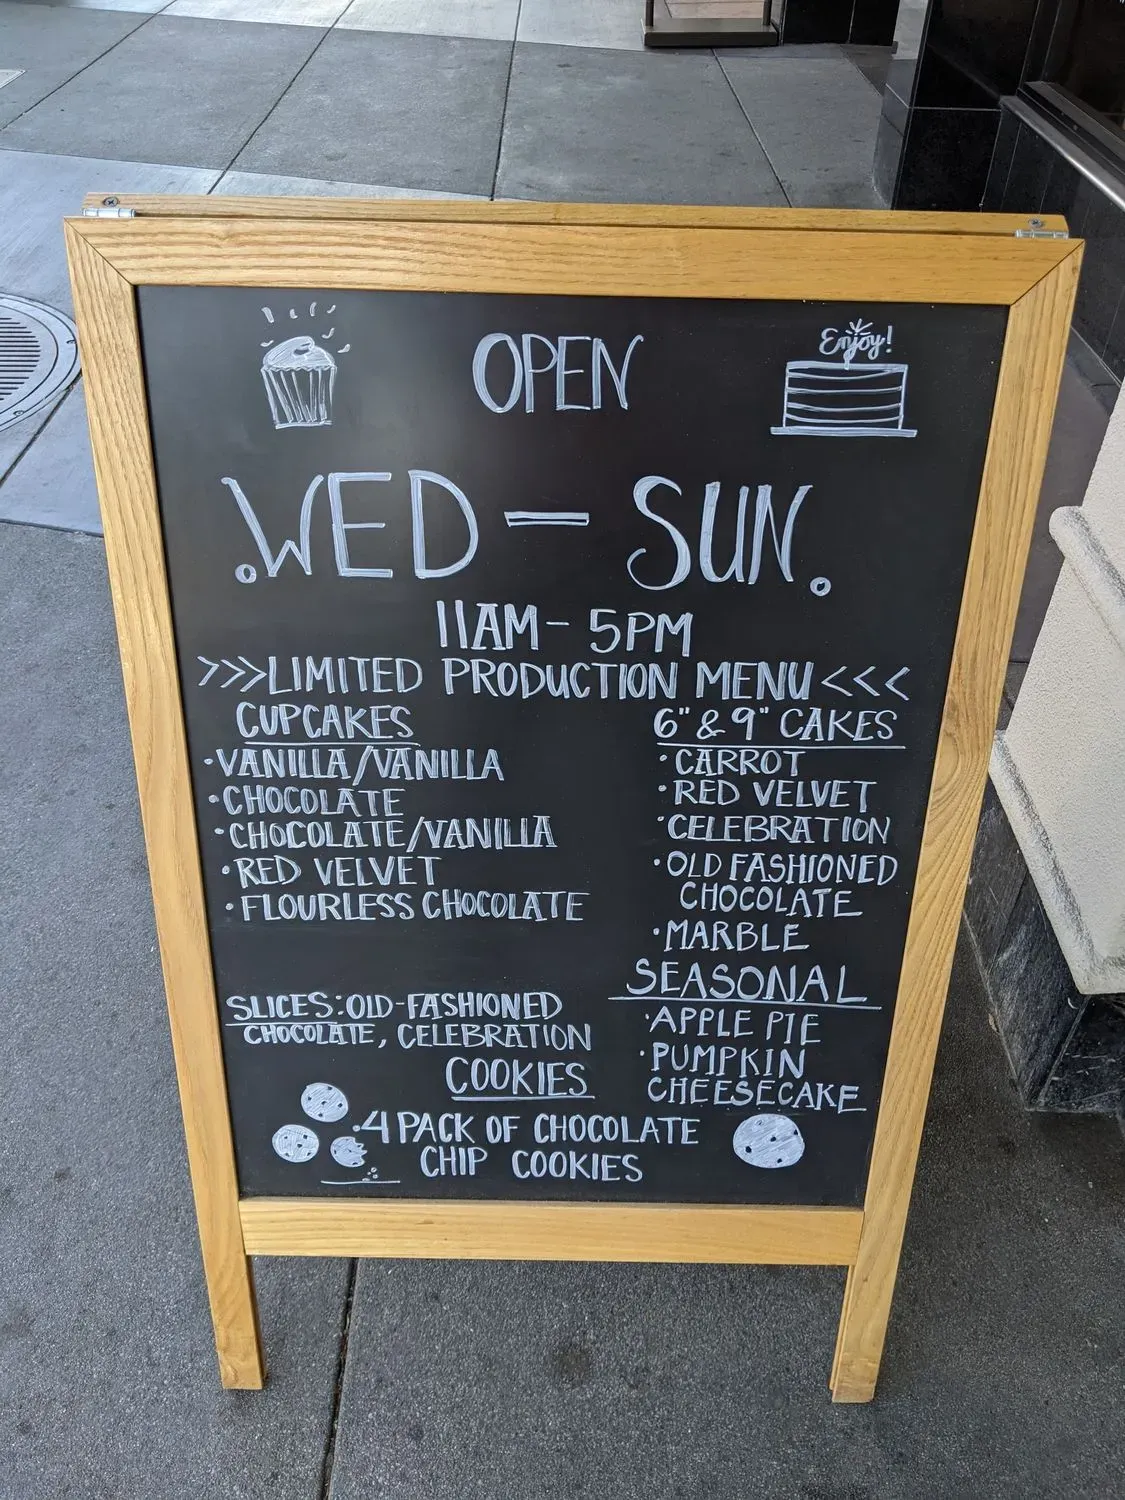 OPEN
Enjoy!
WED - SUN.
11AM - 5PM
>>>LIMITED PRODUCTION MENU<<<
CUPCAKES
·VANILLA/VANILLA
·CHOCOLATE
·CHOCOLATE/VANILLA
·RED VELVET
·FLOURLESS CHOCOLATE
SLICES: OLD-FASHIONED
CHOCOLATE, CELEBRATION
6" & 9" CAKES
·CARROT
·RED VELVET
·CELEBRATION
·OLD FASHIONED
CHOCOLATE
·MARBLE
SEASONAL
·APPLE PIE
·PUMPKIN
CHEESECAKE
COOKIES
·4 PACK OF CHOCOLATE
CHIP COOKIES